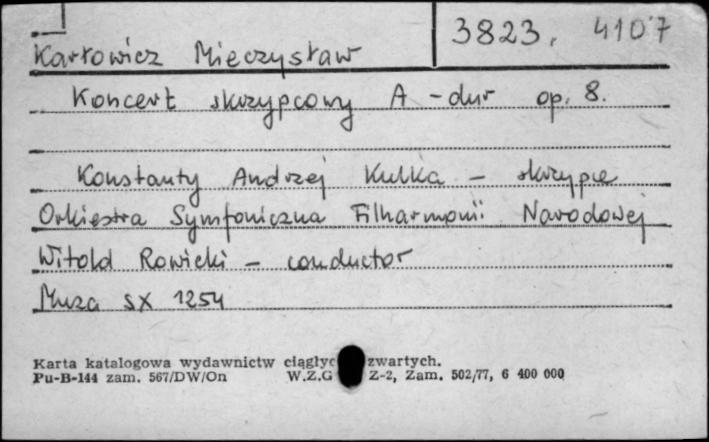 3823, 4107
Karłowicz Mieczysław
Koncert skrzypcowy A-dur op. 8.
Konstanty Andrzej Kulka - skrzypce
Orkiestra Symfoniczna Filharmonii Narodowej
Witold Rowicki - conductor
Muza SX 1254
Karta katalogowa wydawnictw ciągłyc zwartych.
Pu-B-144 zam. 567/DW/On W.Z.G Z-2, Zam. 502/77, 6 400 000